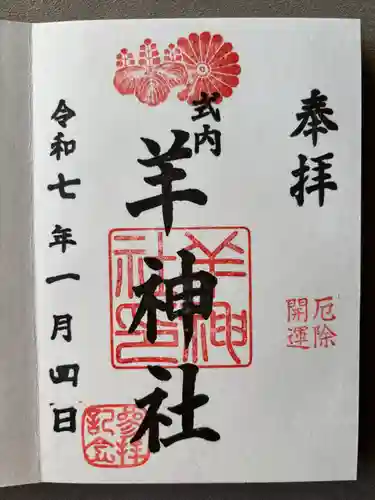 奉拝
厄除
開運
式内
羊神社
羊神社印
令和七年一月四日
参拝
記念